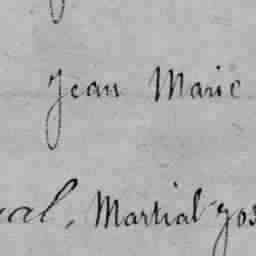 Jean Marie
al, Martial Jos